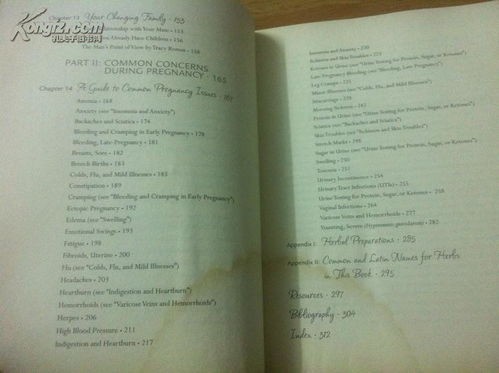 Chapter 13 Your Changing Family • 153
Relationship with Your Mate •
Already Have Children •
The Man's Point of View by Tracy Romm • 158
PART II: COMMON CONCERNS
DURING PREGNANCY • 165
Chapter 14 A Guide to Common Pregnancy Issues • 167
Anemia • 168
Anxiety (see "Insomnia and Anxiety")
Backaches and Sciatica • 174
Bleeding and Cramping in Early Pregnancy • 178
Bleeding, Late-Pregnancy • 181
Breasts, Sore • 182
Breech Births • 183
Colds, Flu, and Mild Illnesses • 185
Constipation • 189
Cramping (see "Bleeding and Cramping in Early Pregnancy")
Ectopic Pregnancy • 192
Edema (see "Swelling")
Emotional Swings • 195
Fatigue • 198
Fibroids, Uterine • 200
Flu (see "Colds, Flu, and Mild Illnesses")
Headaches • 203
Heartburn (see "Indigestion and Heartburn")
Hemorrhoids (see "Varicose Veins and Hemorrhoids")
Herpes • 206
High Blood Pressure • 211
Indigestion and Heartburn • 217
Insomnia and Anxiety • 220
Ketones in Urine (see "Urine Testing for Protein, Sugar, or Ketones")
Late Pregnancy Bleeding (see "Bleeding, Late-Pregnancy")
Leg Cramps •
Minor Illnesses (see "Colds, Flu, and Mild Illnesses")
Miscarriage •
Morning Sickness •
Protein in Urine (see "Urine Testing for Protein, Sugar, or Ketones")
Sciatica (see "Backaches and Sciatica")
Skin Troubles (see "Itchiness and Skin Troubles")
Stretch Marks •
Sugar in Urine (see "Urine Testing for Protein, Sugar, or Ketones")
Swelling • 250
Toxemia • 251
Urinary Incontinence •
Urinary Tract Infections (UTIs) • 255
Urine Testing for Protein, Sugar, or Ketones •
Vaginal Infections • 264
Varicose Veins and Hemorrhoids • 277
Vomiting, Severe (Hyperemesis gravidarum) •
Appendix I: Herbal Preparations • 285
Appendix II: Common and Latin Names for Herbs
in This Book • 295
Resources • 297
Bibliography • 304
Index • 312